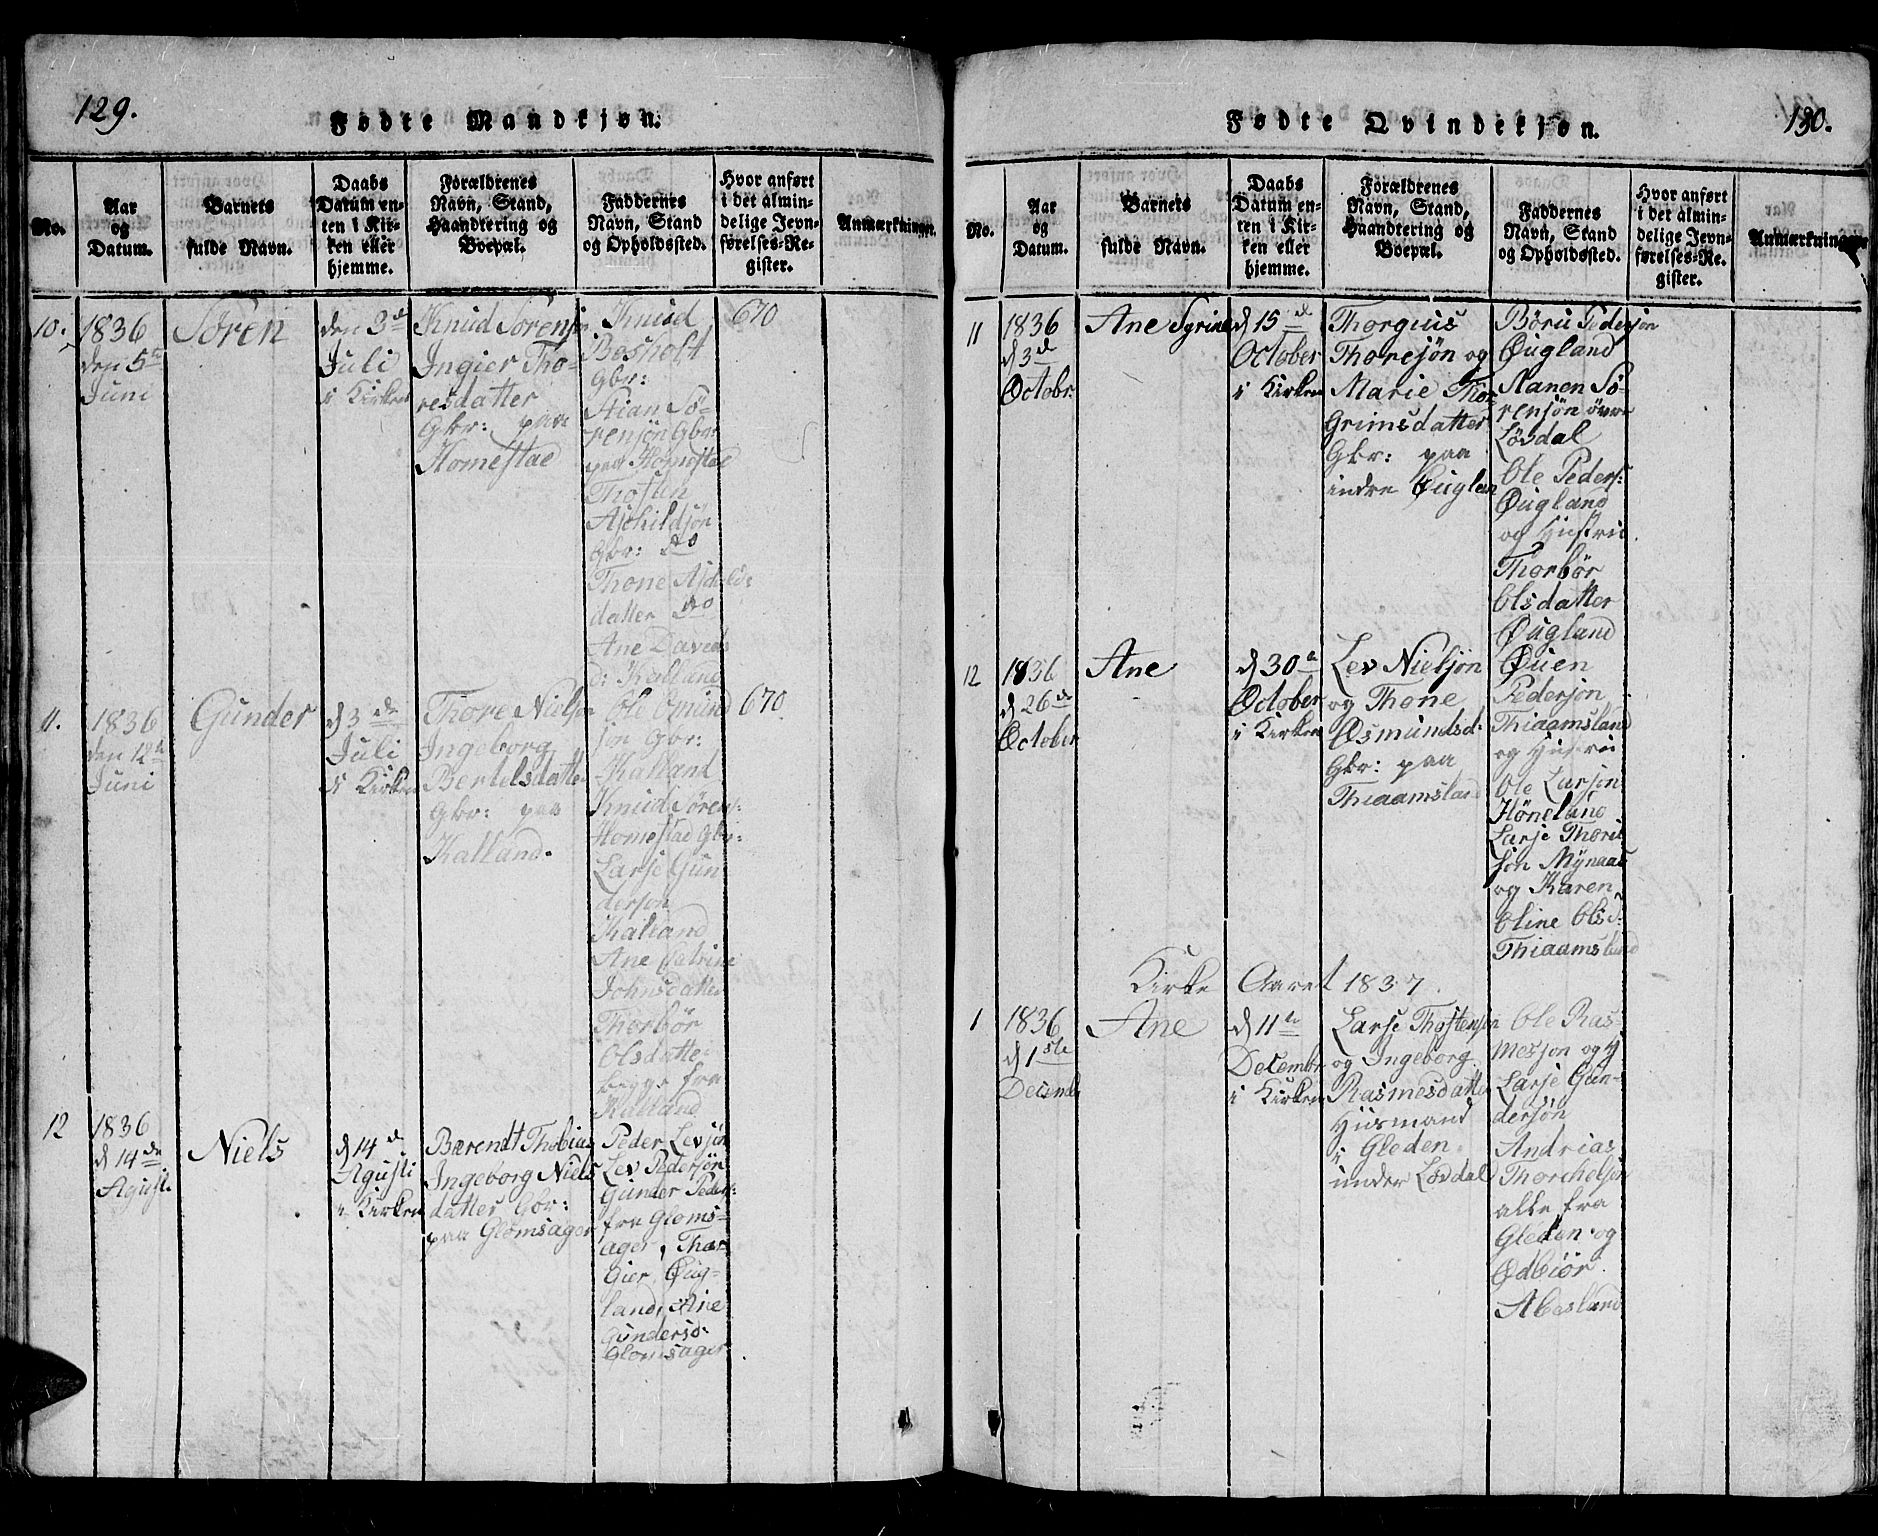 129.
Fødte Mandkjøn.
No.
Aar
og
Datum.
Barnets
fulde Navn.
Daabs
Datum en-
ten i Kir-
ken eller
hjemme.
Forældrenes
Navn, Stand,
Haandtering og
Boepæl.
Faddernes
Navn, Stand
og Opholdssted.
Hvor anført
i det almin-
delige Jevn-
førelses-Re-
gister.
Anmærkninger.
10.
1836
den 5te
Juni
Sören
den 3de
Juli
i Kirken
Knud Sörensjön
Ingier Tho-
resdatter
Gbr: paa
Homestad
Knud
Bosholt
Gbr:
Stian Sö-
rensjön Gbr:
paa Homestad
Thosten
Aschildsjön
Gbr: do
Thone
datter do
Ane Davids
d: Kalland
670
11.
1836
den 12te
Juni
Gunder
d 3de
Juli
i Kirken
Thore Nielsen
Ingeborg
Bertelsdatter
Gbr: paa
Kalland.
Ole Omund
sjön Gbr:
Kalland
Knud Sørens:
Homestad Gbr:
Larse Gun
dersjon
Kalland
Ane Catrine
Johnsdatter
Thorbör
Olsdatter
begge fra
Kalland
670
12
1836
d 14de
Agusti
Niels
d 14de
Agusti
i Kirken
Bærendt Thobias
Ingeborg Niels
datter Gbr:
paa Glomsager
Peder Levsjön
Lev Pedersjön
Gunder Peders:
fra Gloms-
ager, Thor
Gier Øug-
land, Ane
Gundersd:
Glomsager
Fødte Qvindekjøn.
130.
No.
Aar
og
Datum.
Barnets
fulde Navn.
Daabs
Datum en-
ten i Kir-
ken eller
hjemme.
Forældrenes
Navn, Stand,
Haandtering og
Boepæl.
Faddernes
Navn, Stand
og Opholdssted.
Hvor anført
i det almin-
delige Jevn-
førelses-Re-
gister.
Anmærkninger
11
1836
d 3de
Octobr
Ane Syrine
d 15de
October
i Kirken
Thorguus
Thoresjön og
Marie Thor
Grimsdatter
Gbr: paa
indre Øuglan
Böru Pedersjon
Øugland
Nanen Sö-
rensjön övre
Lövdal
Ole Peders:
Øugland
og Hustru
Thorbör
Olsdatter
Øugland
12
1836
d 26de
October
Ane
d 30te
October
i Kirken
Lev Nielsjön
og Thone
Osmundsd:
Gbr: paa
Thiaamsland
Øuen
Pedersjon
Thiaamsland
og Hustru
Ole Larsjon
Hönelund
Larse Thoris
sön Mynaas
og Karen
Oline Olsd:
Thiaamsland
Kirke Aaret 1837.
1
1836
d 1ste
Decemb
Ane
d 11te
Decembr
i Kirken
Larse Thostensjon
og Ingeborg
Rasmesdatter
Husmand
i Gleden
under Lövdal
Ole Ras-
mesjon og
Larse Gun-
dersjön
Andrias
Thorchelsen
alle fra
Gleden og
Ødbiör
Abesland